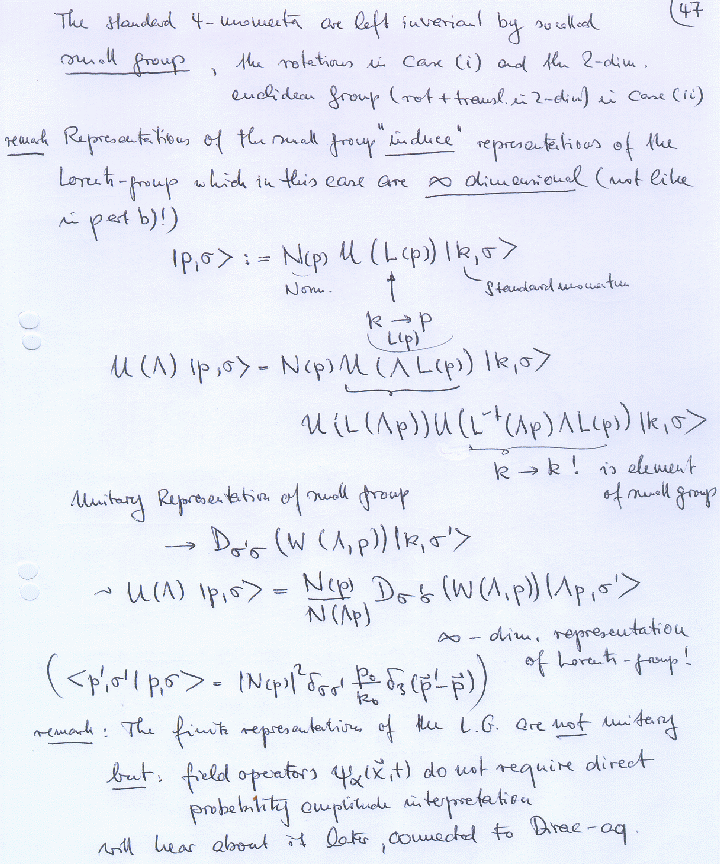 47
The standard 4-momenta are left invariant by so called
small group, the rotations in case (i) and the 2-dim.
euclidean group (rot + transl. in 2-dim) in case (ii)
remark Representations of the small group "induce" representations of the
Lorentz-group which in this case are ∞ dimensional (not like
in part b)!)
|p,σ> := N(p) U (L(p)) |k,σ>
Norm. Standard momentum
k → p
L(p)
U(Λ) |p,σ> = N(p) U (Λ L(p)) |k,σ>
U(L(Λp)) U(L⁻¹(Λp) Λ L(p)) |k,σ>
k → k! is element
of small group
Unitary Representation of small group
→ D_σ'σ (W(Λ,p)) |k,σ'>
~ U(Λ) |p,σ> = N(p)/N(Λp) D_σ'σ (W(Λ,p)) |Λp,σ'>
∞-dim. representation
of Lorentz-group!
(<p',σ'|p,σ> = |N(p)|² δ_σσ' p₀/k₀ δ₃(p⃗'-p⃗))
remark: The finite representations of the L.G. are not unitary
but: field operators ψ_α(x⃗,t) do not require direct
probability amplitude interpretation
will hear about it later, connected to Dirac-eq.